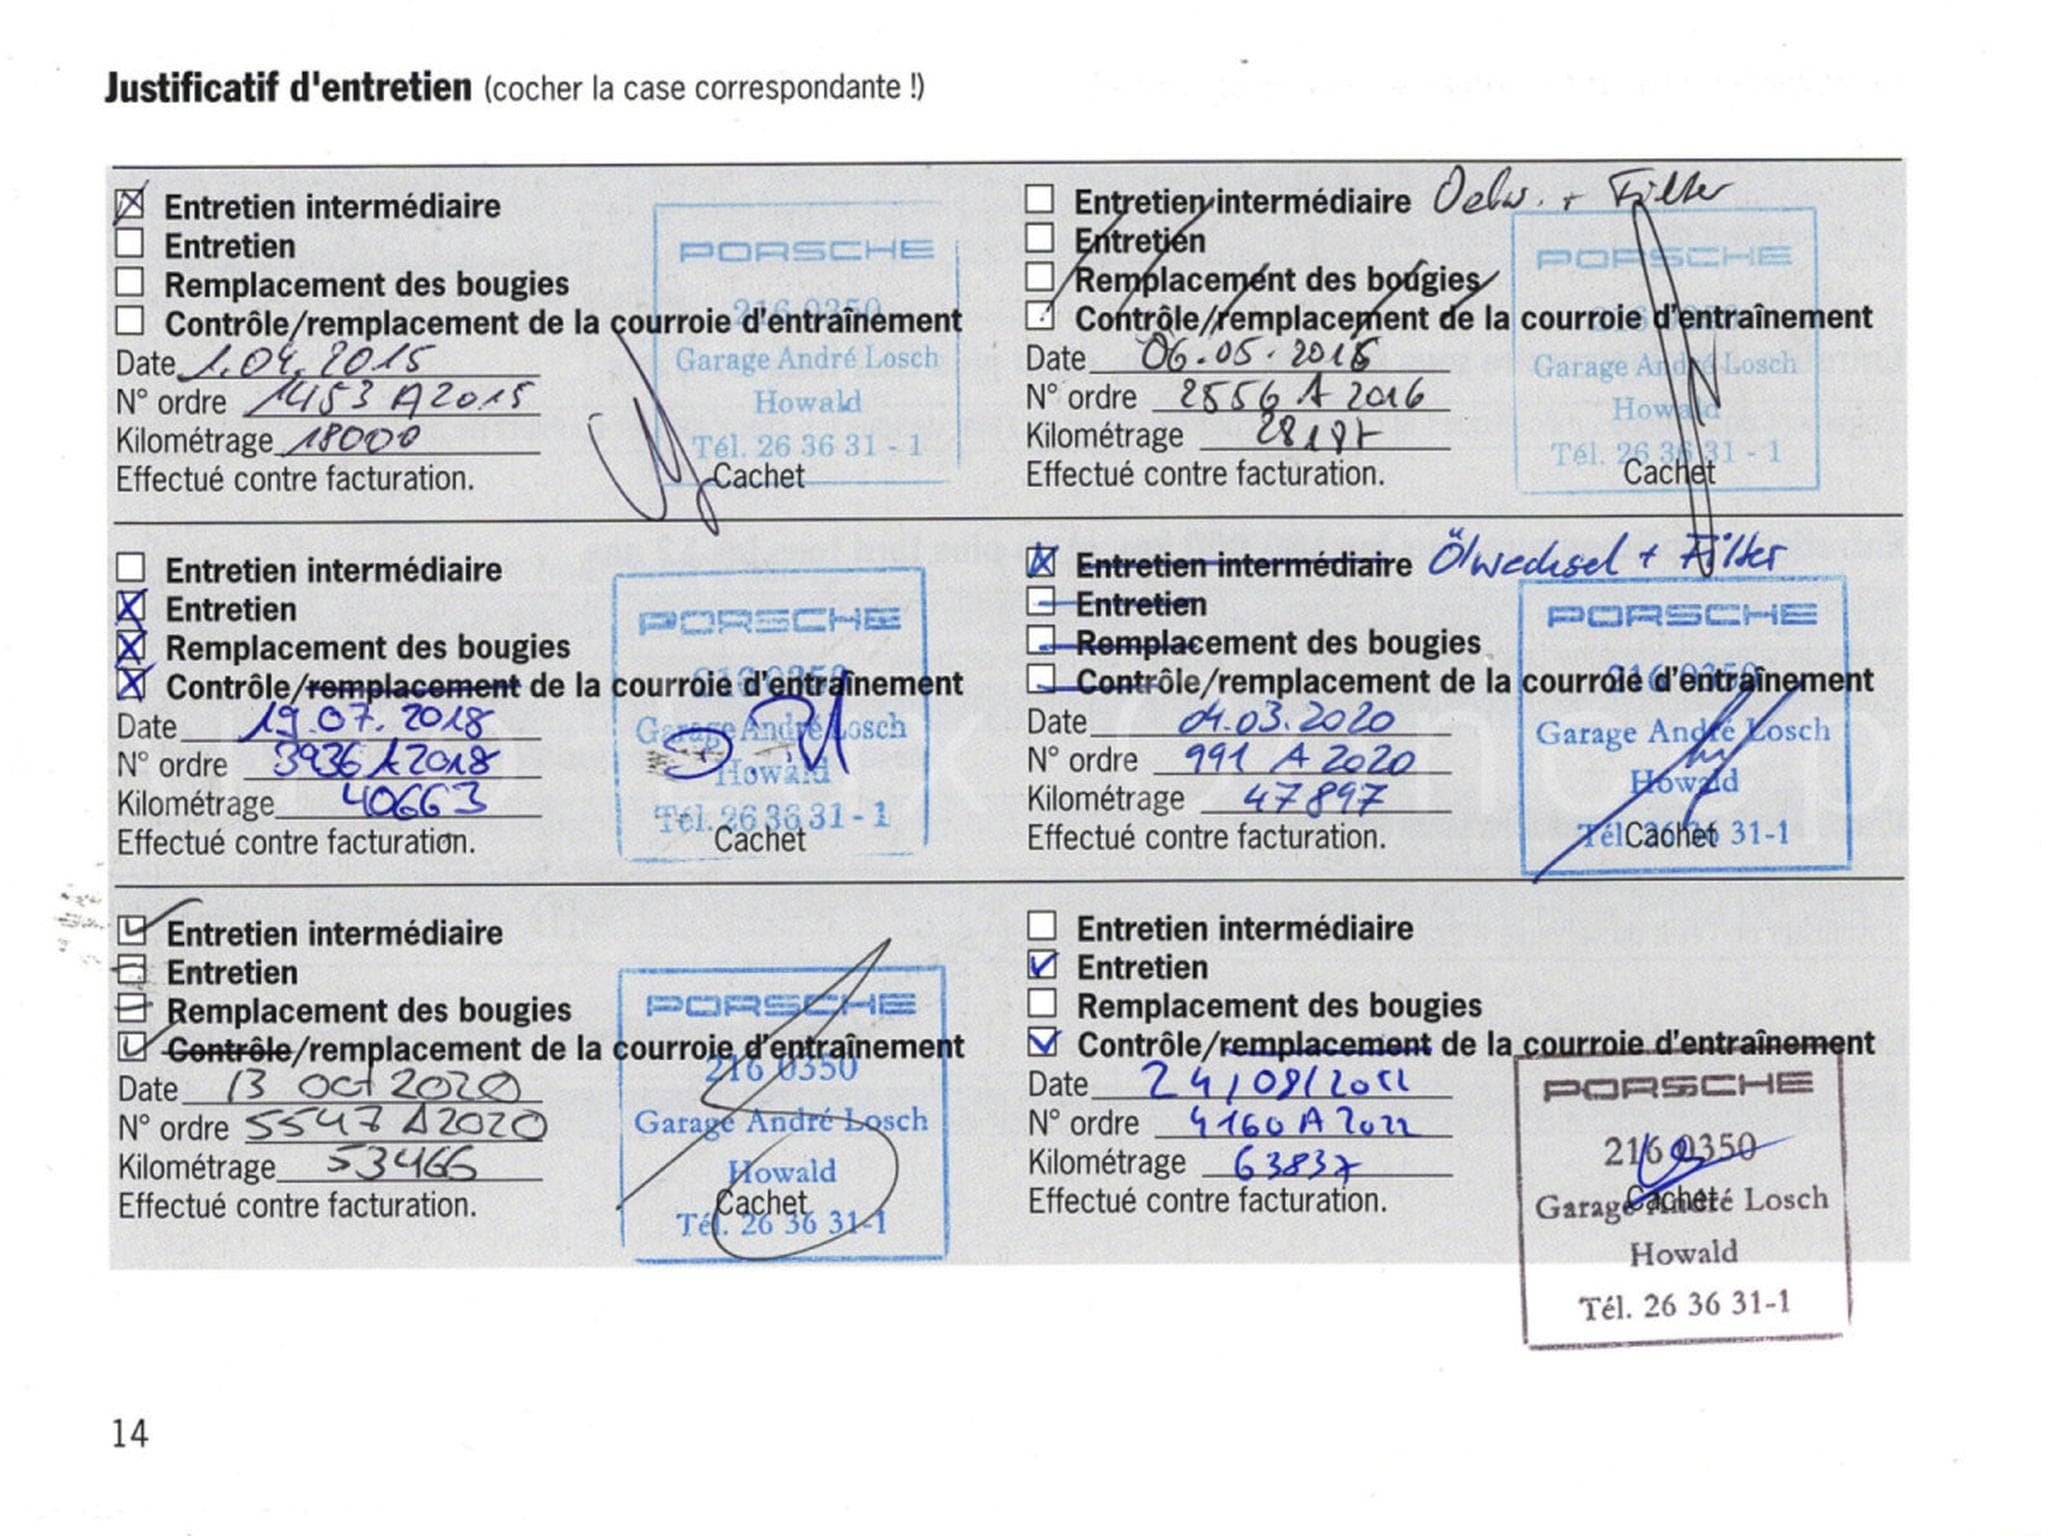 Justificatif d'entretien (cocher la case correspondante !)
Entretien intermédiaire
Entretien
Remplacement des bougies
Contrôle/remplacement de la courroie d'entraînement
Date 1.04.2015
N° ordre 1453 A2015
Kilométrage 18000
Effectué contre facturation.
Cachet
PORSCHE
216 0350
Garage André Losch
Howald
Tél. 26 36 31 - 1
Entretien intermédiaire Oelw. + Filter
Entretien
Remplacement des bougies
Contrôle/remplacement de la courroie d'entraînement
Date 06.05.2016
N° ordre 2556 A 2016
Kilométrage 28197
Effectué contre facturation.
Cachet
PORSCHE
216 0350
Garage André Losch
Howald
Tél. 26 36 31 - 1
Entretien intermédiaire
Entretien
Remplacement des bougies
Contrôle/remplacement de la courroie d'entraînement
Date 19.07.2018
N° ordre 3936 A2018
Kilométrage 40663
Effectué contre facturation.
Cachet
PORSCHE
216 0350
Garage André Losch
Howald
Tél. 26 36 31 - 1
Entretien intermédiaire Ölwechsel + Filter
Entretien
Remplacement des bougies
Contrôle/remplacement de la courroie d'entraînement
Date 04.03.2020
N° ordre 991 A 2020
Kilométrage 47897
Effectué contre facturation.
Cachet
PORSCHE
216 0350
Garage André Losch
Howald
Tél. 26 36 31-1
Entretien intermédiaire
Entretien
Remplacement des bougies
Contrôle/remplacement de la courroie d'entraînement
Date 13 Oct 2020
N° ordre 5547 A2020
Kilométrage 53466
Effectué contre facturation.
Cachet
PORSCHE
216 0350
Garage André Losch
Howald
Tél. 26 36 31-1
Entretien intermédiaire
Entretien
Remplacement des bougies
Contrôle/remplacement de la courroie d'entraînement
Date 24/08/2022
N° ordre 4160 A 2022
Kilométrage 63837
Effectué contre facturation.
Cachet
PORSCHE
216 0350
Garage André Losch
Howald
Tél. 26 36 31-1
14